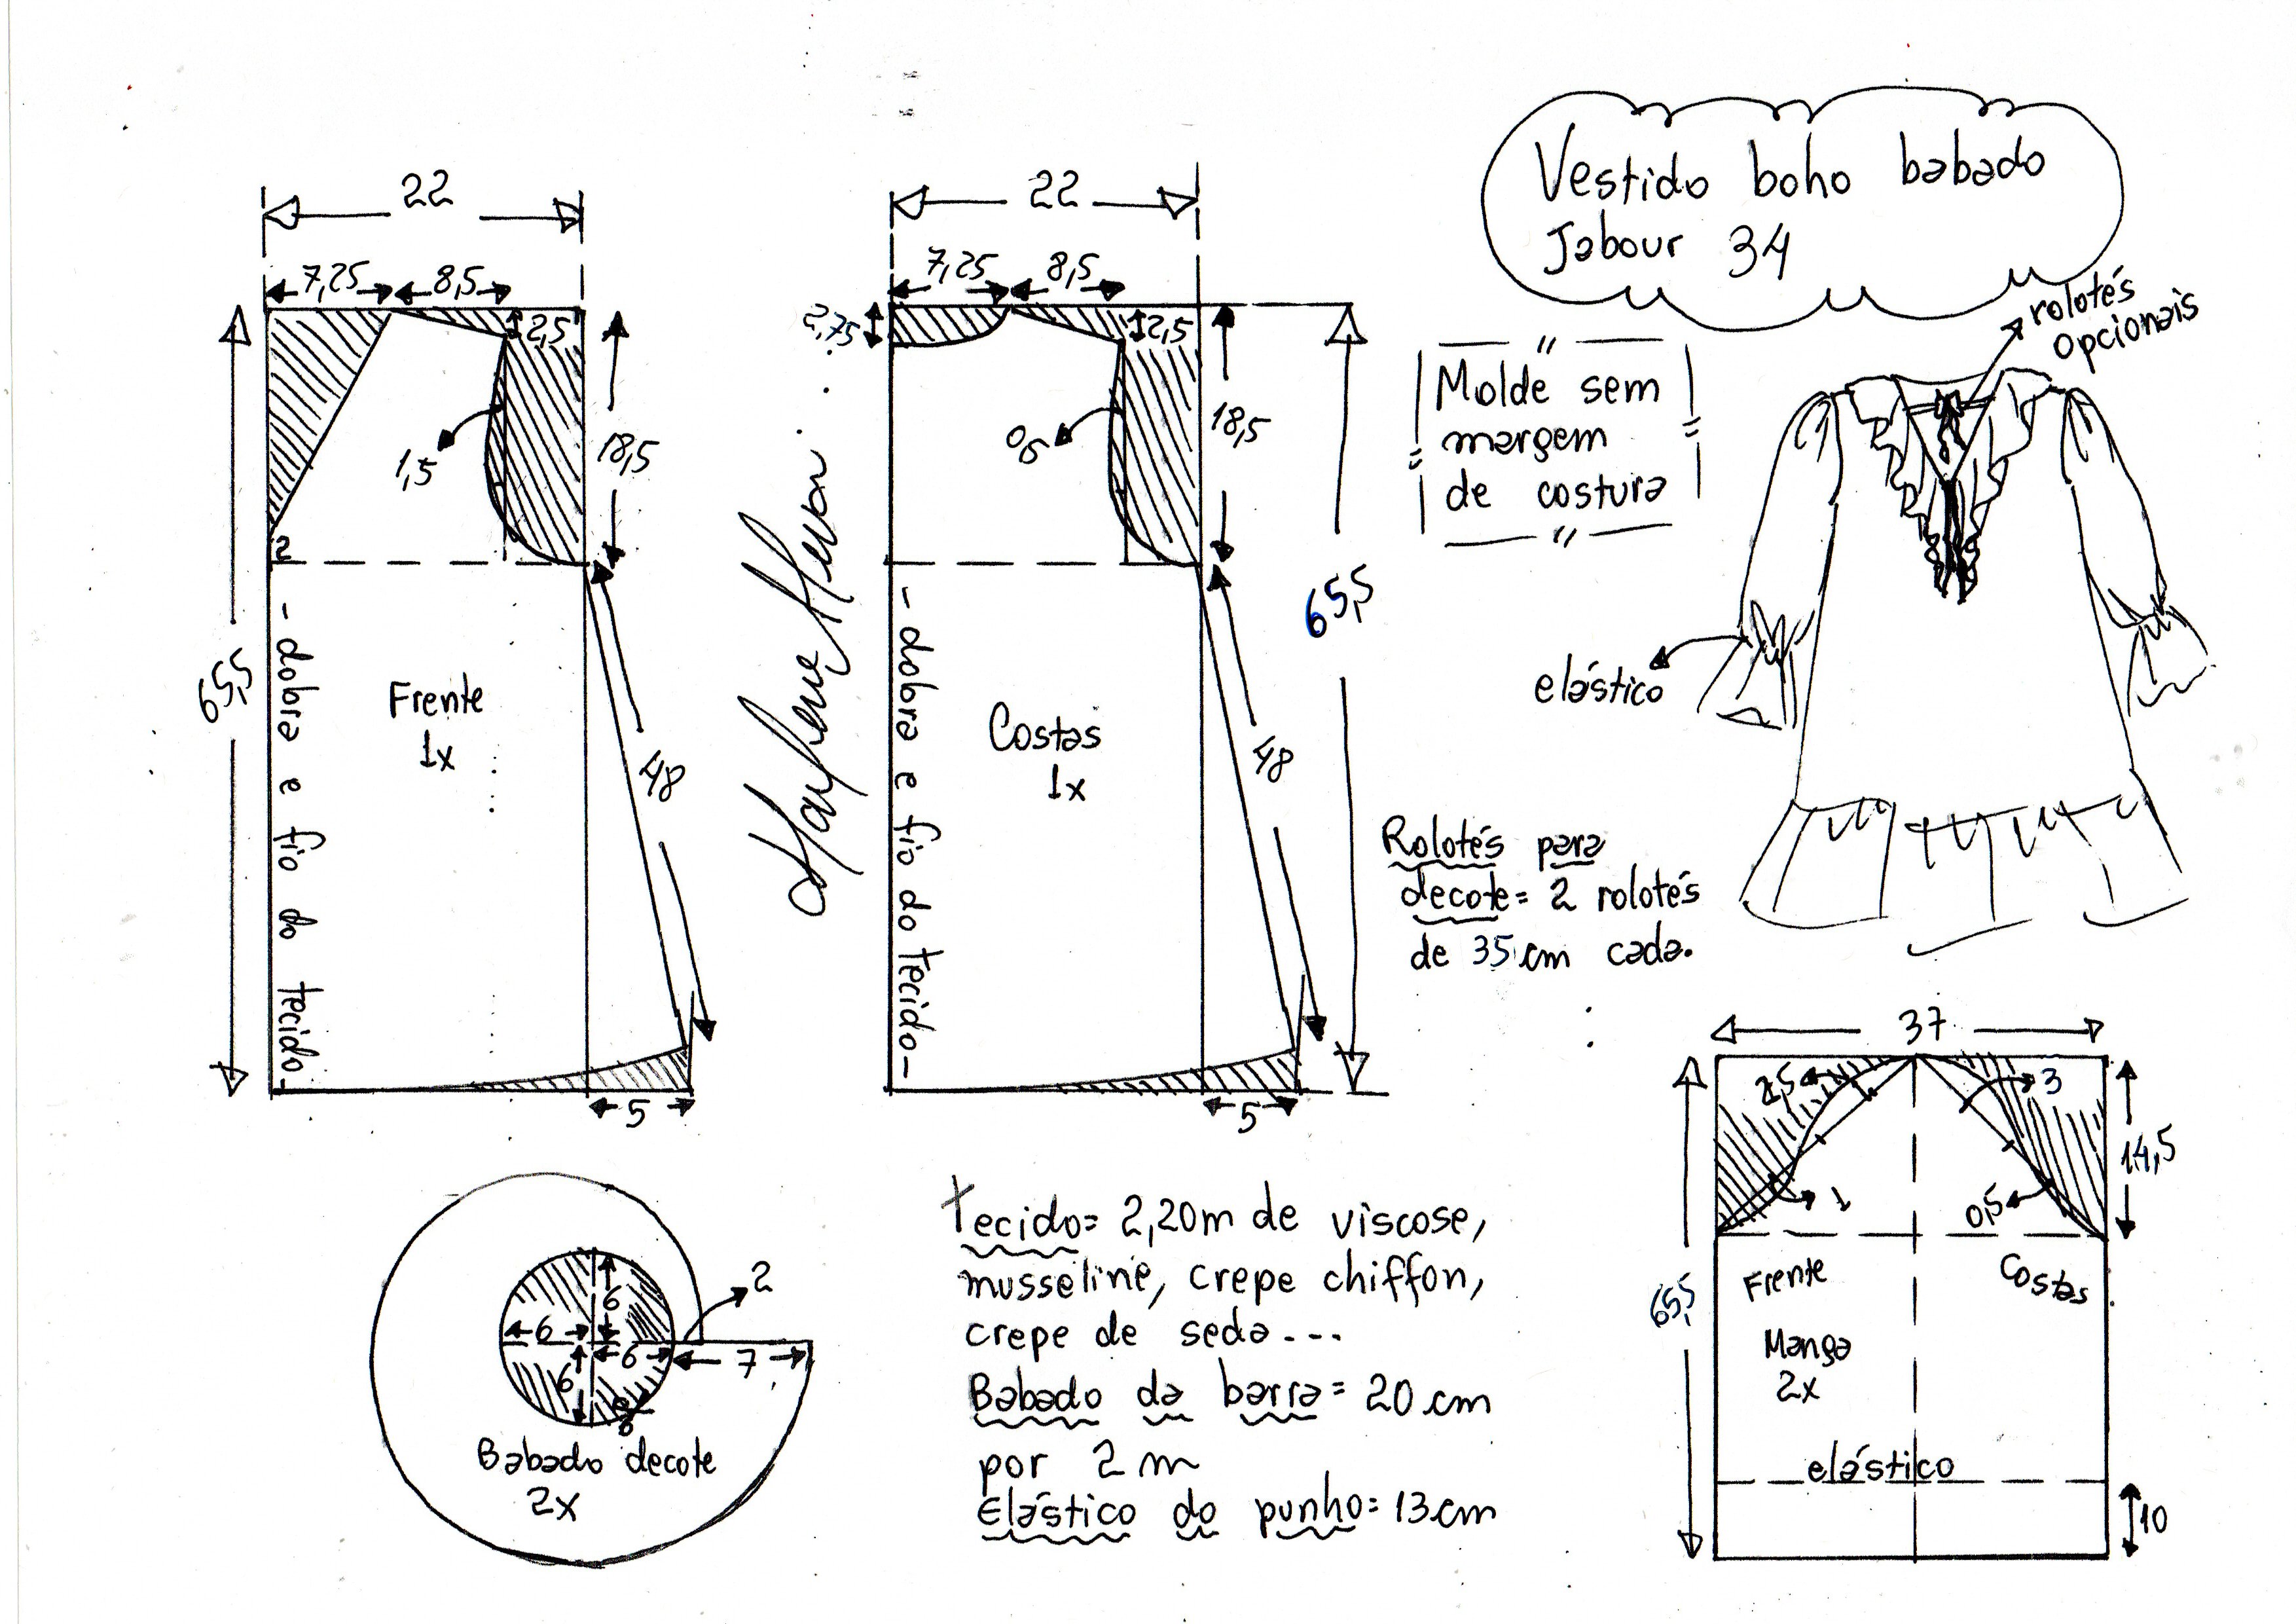 Vestido boho babado
Jabour 34
rolotés
opcionais
Molde sem
margem
de costura
elástico
Rolotés para
decote= 2 rolotés
de 35 cm cada.
22
7,25
8,5
2,5
1,5
18,5
2
65,5
- dobra e fio do tecido-
Frente
1x
48
5
Marlene Mukai
22
7,25
8,5
2,75
2,5
18,5
65,5
- dobra e fio do tecido-
Costas
1x
48
5
2
6
6
6
6
7
Babado decote
2x
Tecido= 2,20m de viscose,
musseline, crepe chiffon,
crepe de seda...
Babado da barra= 20 cm
por 2 m
Elástico do punho= 13cm
37
2,5
3
14,5
1
0,5
65,5
Frente
Costas
Manga
2x
elástico
10